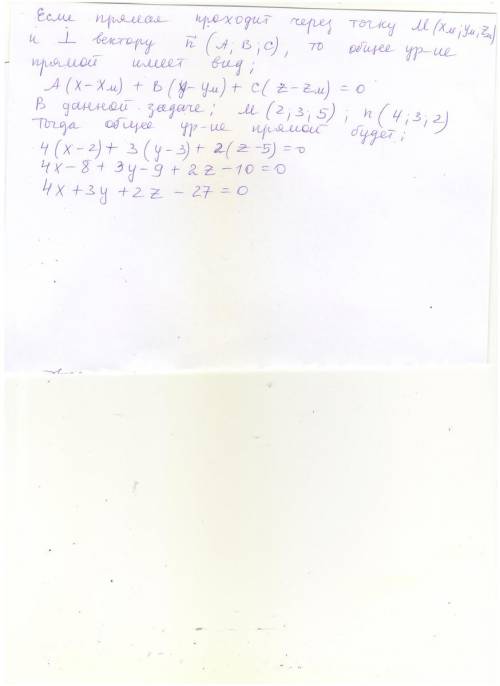 Если прямая проходит через точку M(xм; yм; zм)
и ⊥ вектору n̅ (A; B; C), то общее ур-ие
прямой имеет вид;
A(x-xм) + B(y-yм) + C(z-zм) = 0
В данной задаче; M(2; 3; 5); n̅(4; 3; 2)
Тогда общее ур-ие прямой будет;
4(x-2) + 3(y-3) + 2(z-5) = 0
4x - 8 + 3y - 9 + 2z - 10 = 0
4x + 3y + 2z - 27 = 0